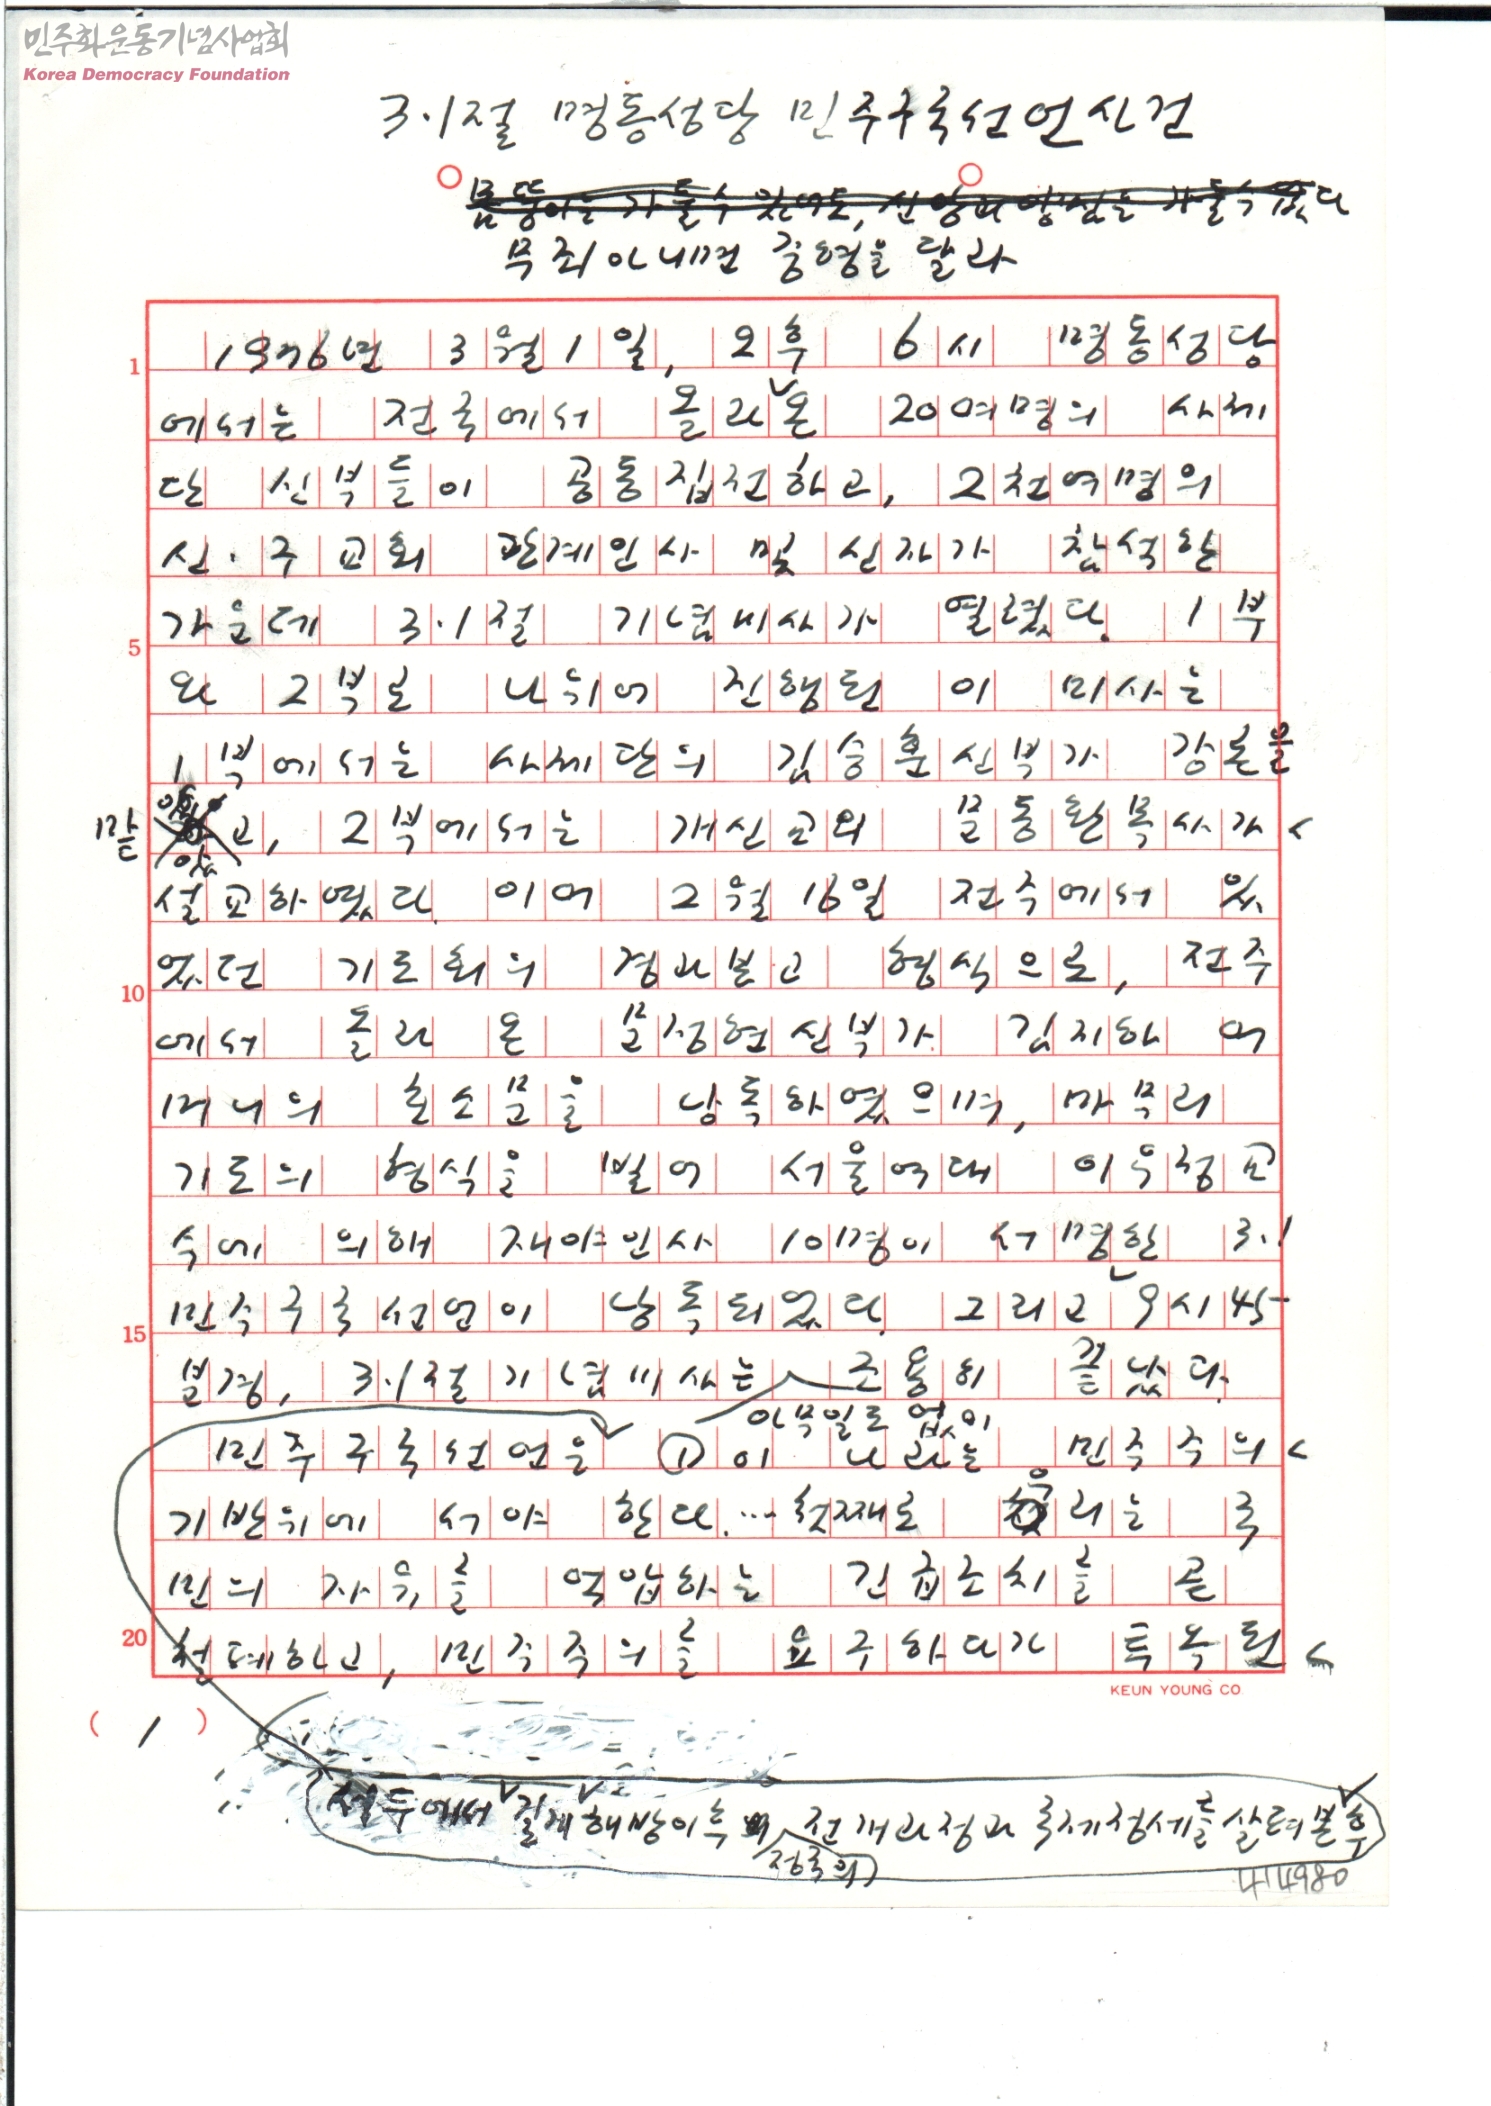 민주화운동기념사업회
Korea Democracy Foundation
3·1절 명동성당 민주구국선언사건
몸뚱이는 가둘수 있어도, 신앙과 양심은 가둘수 없다
무죄 아니면 중형을 달라
1976년 3월 1일, 오후 6시 명동성당
1
에서는 전국에서 올라온 20여명의 사제
단 신부들이 공동집전하고, 2천여명의
신·구 교회 관계인사 및 신자가 참석한
가운데 3·1절 기념미사가 열렸다. 1부
5
와 2부로 나뉘어 진행된 이 미사는
1부에서는 사제단의 김승훈 신부가 강론을
맡고, 2부에서는 개신교의 문동환 목사가
설교하였다. 이어 2월 16일 전주에서 있
었던 기도회의 경과보고 형식으로, 전주
10
에서 올라 온 문정현 신부가 김지하 어
머니의 호소문을 낭독하였으며, 마무리
기도의 형식을 빌어 서울여대 이우정 교
수에 의해 재야인사 10명이 서명한 3·1
민주구국선언이 낭독되었다. 그리고 9시 45
15
분경, 3·1절 기념미사는 조용히 끝났다.
아무일도 없이
민주구국선언은 ① 이 나라는 민주주의
기반위에 서야 한다. … 첫째로 우리는 국
민의 자유를 억압하는 긴급조치를 곧
철폐하고, 민주주의를 요구하다가 투옥된
20
KEUN YOUNG CO.
( 1 )
서두에서 길게 해방이후의 전개과정과 국제정세를 살펴본 후
정국의
414980